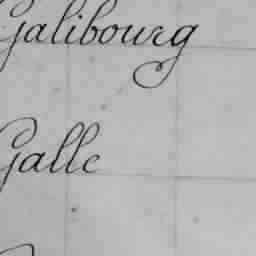 Galibourg
Galle